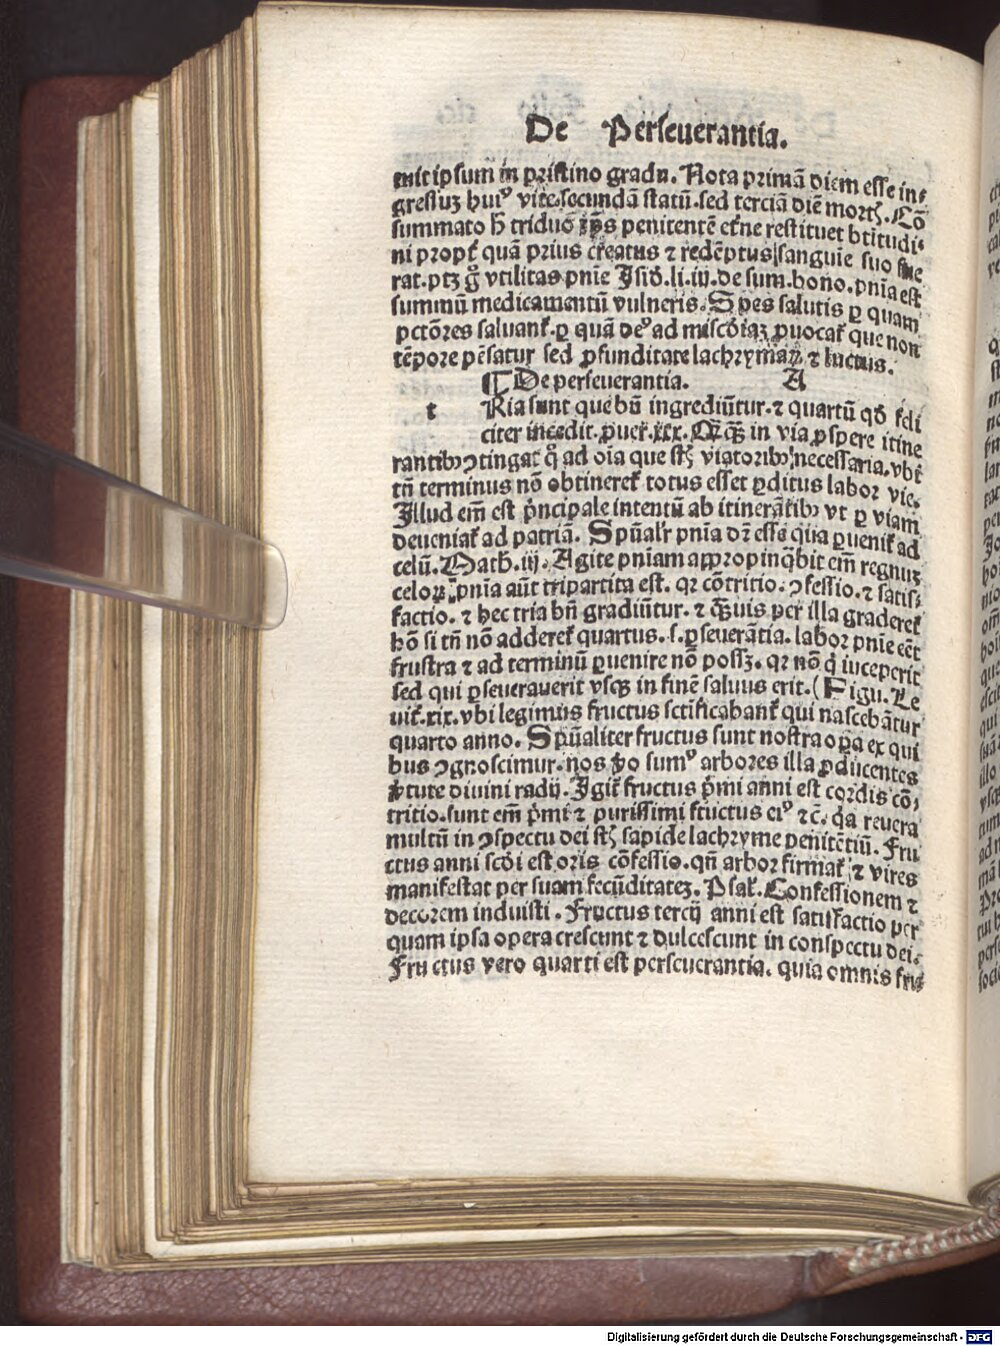 De Perseuerantia.
mit ipsum in pristino gradu. Nota primā diem esse in⸗
gressuꝫ huiꝰ vite. secundā statū. sed terciā diē mortꝭ. Cō
summato h̄ triduo xp̄s penitentē etne restituet btītudi⸗
ni propt̄ quā prius creatus ⁊ redēptus sanguie suo fue
rat. ptꝫ g̊ vtilitas pnīe Isid̄. li. iij. de sum. bono. pnīa est
summū medicamentū vulneris. Spes salutis ꝑ quam
pctōres saluant̄. ꝑ quā deꝰ ad mīscdiaꝫ ꝓuocat̄ que non
tēpore pēsatur sed ꝓfunditate lachrymaꝝ ⁊ luctus.
¶ De perseuerantia. A
t Ria sunt que bn̄ ingrediūtur. ⁊ quartū qd̄ feli
citer incedit. ꝓuer̄. xxx. Qꝫq̄ꝫ in via ꝓspere itine
rantibꝫ ꝯtingat q̊ ad oīa que sꝭ viatoribꝫ necessaria. vbi
tn̄ terminus nō obtineret̄ totus esset ꝑditus labor vie.
Illud em̄ est pͥncipale intentū ab itinerātibꝫ vt ꝑ viam
deueniāt ad patriā. Spūalr̄ pnīa dꝛ esse qͥa ꝑuenit̄ ad
celū. Math. iij. Agite pnīam appropinqͣbit em̄ regnuꝫ
celoꝝ. pnīa aūt tripartita est. qꝛ cōtritio. ꝯfessio. ⁊ satis⸗
factio. ⁊ hec tria bn̄ gradiūtur. ⁊ q̄ꝫuis per illa graderet̄
hō si tn̄ nō adderet̄ quartus. s. ꝑseuerātia. labor pnīe eēt
frustra ⁊ ad terminū ꝑuenire nō possꝫ. qꝛ non q̇ inceperit
sed qui ꝑseuerauerit vsqꝫ in finē saluus erit. (Figu. Le
uit̄. xix. vbi legimus fructus sctīficabant̄ qui nascebātur
quarto anno. Spūaliter fructus sunt nostra oꝑa ex qui
bus ꝯgnoscimur. nos ꝟo sumꝰ arbores illa ꝓducentes
ꝟtute diuini radij. Igit̄ fructus pͥmi anni est cordis cō⸗
tritio. sunt em̄ pͥmi ⁊ purissimi fructus eiꝰ ⁊c̄. qͣ reuera
multū in ꝯspectu dei sꝭ sapide lachryme penitētiū. Fru
ctus anni scdi est oris cōfessio. qn̄ arbor firmat̄ ⁊ vires
manifestat per suam fecūditateꝫ. Psal̄. Confessionem ⁊
decorem induisti. Fructus tercij anni est satisfactio per
quam ipsa opera crescunt ⁊ dulcescunt in conspectu dei.
Fructus vero quarti est perseuerantia. quia omnis fru⸗
Digitalisierung gefördert durch die Deutsche Forschungsgemeinschaft - DFG